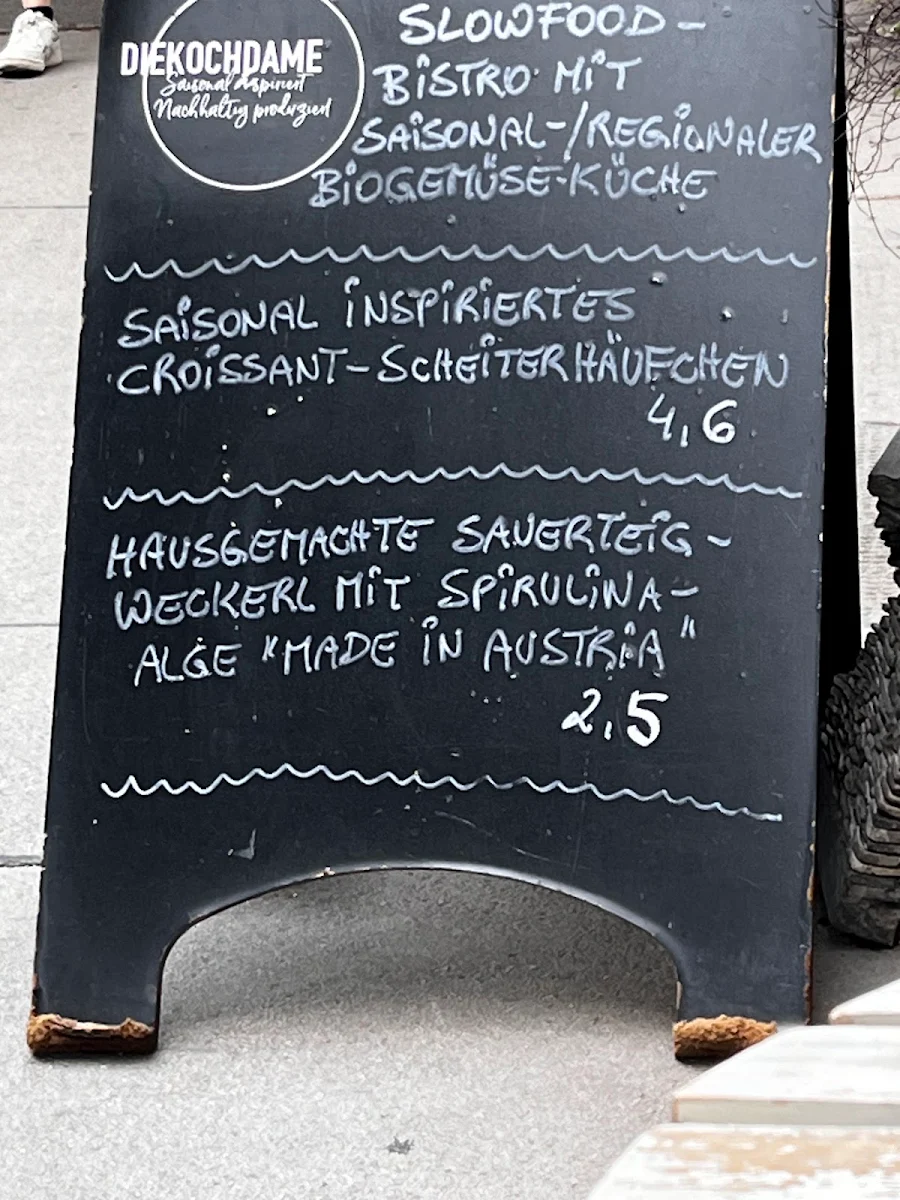 DIEKOCHDAME
Saisonal inspiriert
Nachhaltig produziert
SLOWFOOD-
BISTRO MIT
SAISONAL-/REGIONALER
BIOGEMÜSE-KÜCHE
SAISONAL INSPIRIERTES
CROISSANT-SCHEITERHÄUFCHEN
4,6
HAUSGEMACHTE SAUERTEIG-
WECKERL MIT SPIRULINA-
ALGE "MADE IN AUSTRIA"
2,5